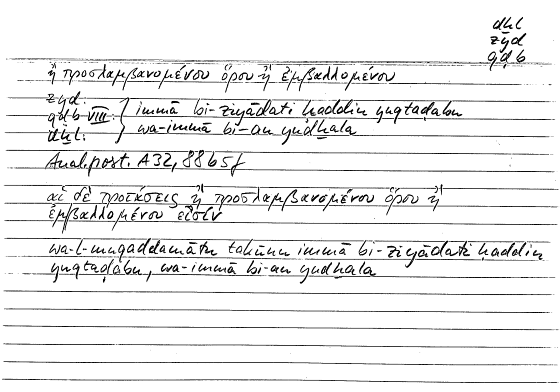 dḫl
zyd
qḍb
ἢ προσλαμβανομένου ὅρου ἢ ἐμβαλλομένου
zyd.
qḍb VIII. } immā bi-ziyādati ḥaddin yuqtaḍabu
dḫl. wa-immā bi-an yudḫala
Anal. post. A 32, 88b5f
αἱ δὲ προτάσεις ἢ προσλαμβανομένου ὅρου ἢ
ἐμβαλλομένου εἰσίν
wa-l-muqaddamātu takūnu immā bi-ziyādati ḥaddin
yuqtaḍabu, wa-immā bi-an yudḫala